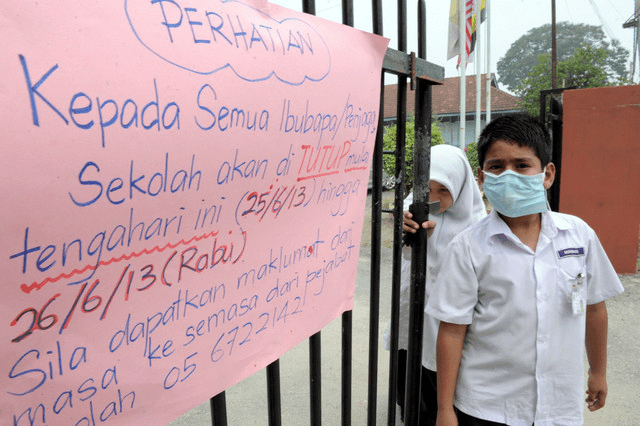 PERHATIAN
Kepada Semua Ibubapa/Penjaga
Sekolah akan di TUTUP mulai
tengahari ini (25/6/13) hingga
26/6/13 (Rabu)
Sila dapatkan maklumat dari
masa ke semasa dari pejabat
olah 05 6722142